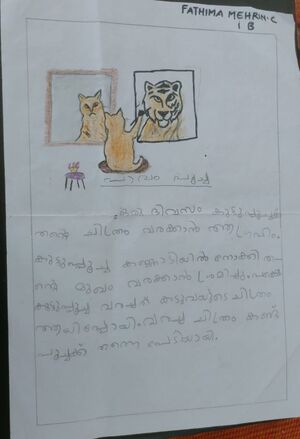 FATHIMA MEHRIN.C
1 B
പാവം പൂച്ച
ഒരു ദിവസം കുട്ടുപ്പൂച്ചക്ക്
തന്റെ ചിത്രം വരക്കാൻ ആഗ്രഹം.
കുട്ടുപ്പൂച്ച കണ്ണാടിയിൽ നോക്കി ത-
ന്റെ മുഖം വരക്കാൻ ശ്രമിച്ചു. പക്ഷേ
കുട്ടുപ്പൂച്ച വരച്ചത് കടുവയുടെ ചിത്രം
ആയിപ്പോയി. വരച്ച ചിത്രം കണ്ട്
പൂച്ചക്ക് തന്നെ പേടിയായി.